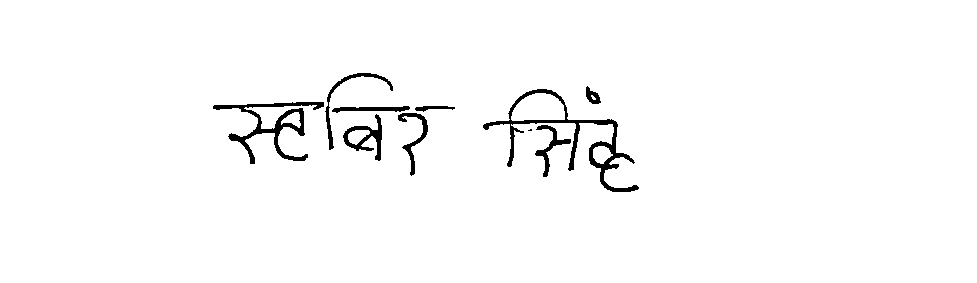 स्हबिर सिंह